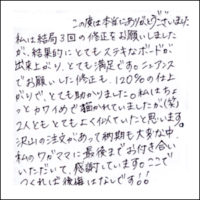 この度は本当にありがとうございました
私は結局3回の修正をお願いしました
が、結果的にとてもステキなボードが
出来上がり、とても満足です。ニュアンス
でお願いした修正も、120%の仕上
がりで、とても助かりました。私はちょ
っとカワイめで描かれていましたが(笑)
2人ともとてもよく似ていたと思います。
沢山の注文があって納期も大変な中、
私のワガママに最後までお付き合い
いただいて、感謝しています。ここで
つくれば後悔はないです!!